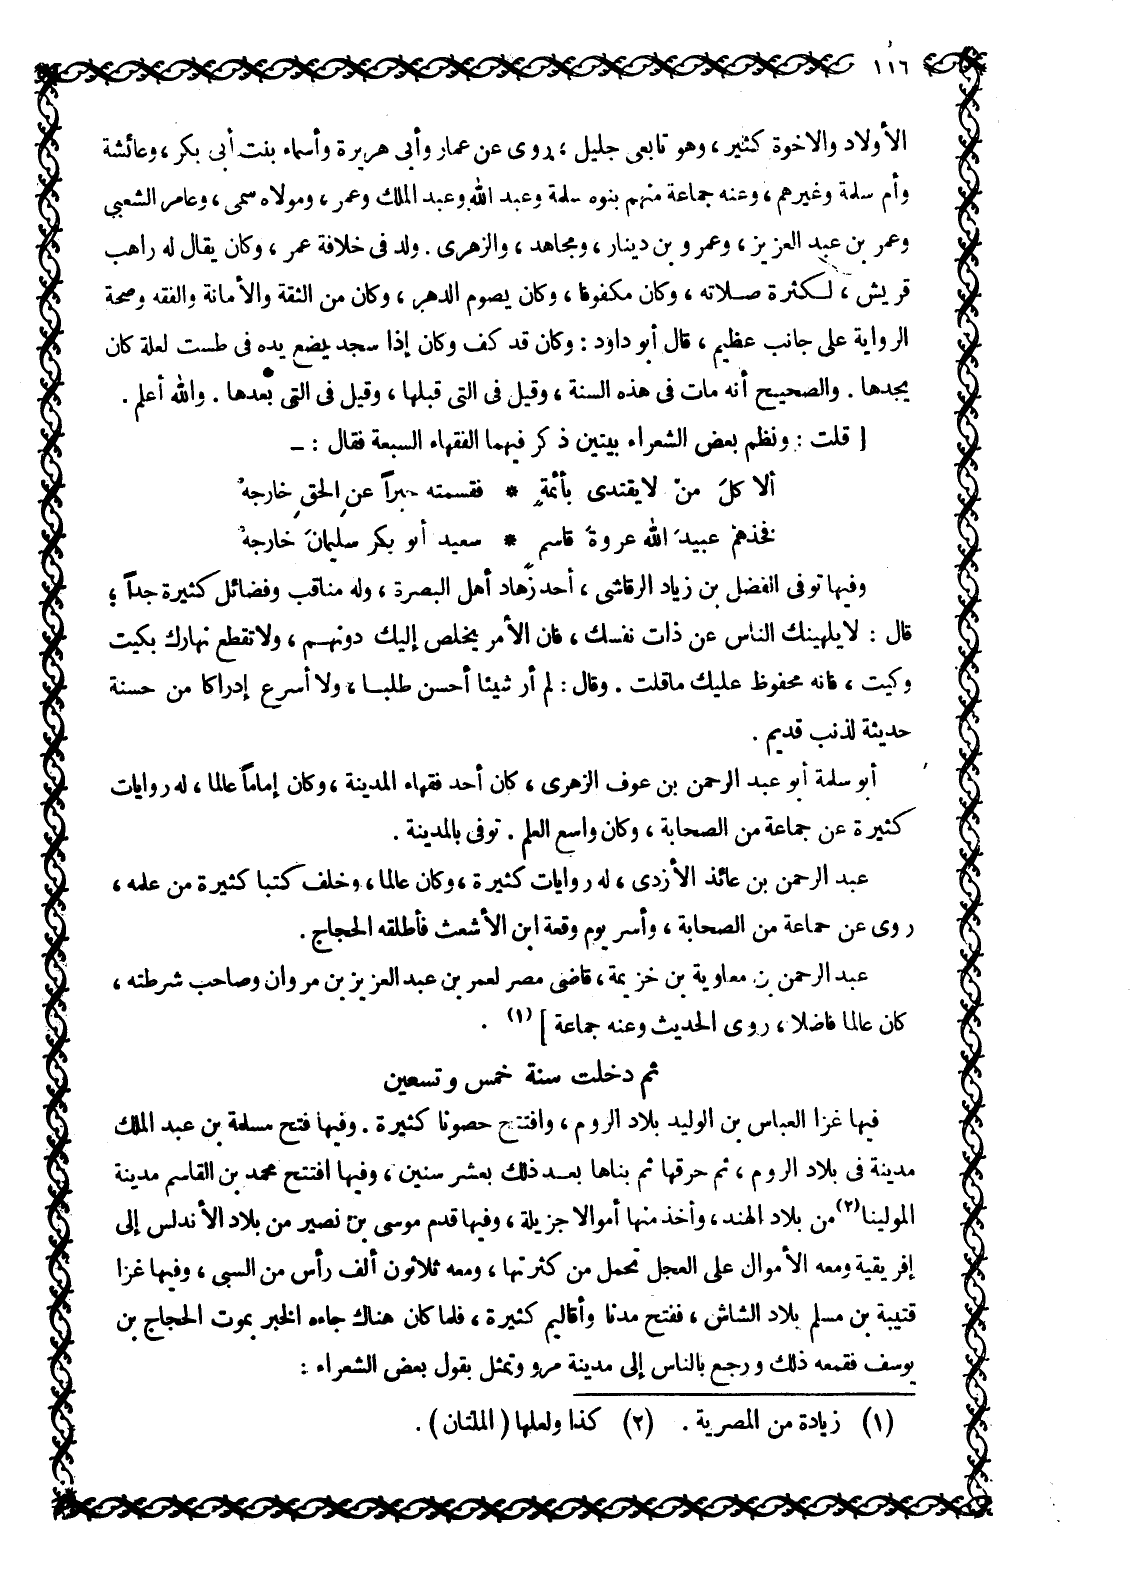 ١١٦
الأولاد والاخوة كثير ، وهو تابعى جليل ، روى عن عمار وأبى هريرة وأسماء بنت أبى بكر ، وعائشة
وأم سلمة وغيرهم ، وعنه جماعة منهم بنوه سلمة وعبد الله وعبد الملك وعمر ، ومولاه سمى ، وعامر الشعبي
وعمر بن عبد العزيز ، وعمرو بن دينار ، ومجاهد ، والزهرى . ولد فى خلافة عمر ، وكان يقال له راهب
قريش ، لكثرة صلاته ، وكان مكفوفا ، وكان يصوم الدهر ، وكان من الثقة والأمانة والفقه وصحة
الرواية على جانب عظيم ، قال أبو داود : وكان قد كف وكان إذا سجد يضع يده فى طست لعلة كان
يجدها . والصحيح أنه مات فى هذه السنة ، وقيل فى التى قبلها ، وقيل فى التى بعدها . والله أعلم .
[ قلت : ونظم بعض الشعراء بيتين ذكر فيهما الفقهاء السبعة فقال : ـ
ألا كلَ منْ لا يقتدى بأئمةٍ * فقسمته جبراً عنِ الحقِ خارجهْ
فخذهمْ عبيدَ الله عروةَ قاسم * سعيد أبو بكر سليمانَ خارجهْ
وفيها توفى الفضل بن زياد الرقاشى ، أحد زُهاد أهل البصرة ، وله مناقب وفضائل كثيرة جداً ؛
قال : لا يلهينك الناس عن ذات نفسك ، فان الأمر يخلص إليك دونهم ، ولا تقطع نهارك بكيت
وكيت ، فانه محفوظ عليك ما قلت . وقال : لم أر شيئا أحسن طلبا ، ولا أسرع إدراكا من حسنة
حديثة لذنب قديم .
أبو سلمة أبو عبد الرحمن بن عوف الزهرى ، كان أحد فقهاء المدينة ، وكان إماماً عالما ، له روايات
كثيرة عن جماعة من الصحابة ، وكان واسع العلم . توفى بالمدينة .
عبد الرحمن بن عائذ الأزدى ، له روايات كثيرة ، وكان عالما ، وخلف كتبا كثيرة من علمه ،
روى عن جماعة من الصحابة ، وأسر يوم وقعة ابن الأشعث فأطلقه الحجاج .
عبد الرحمن بن معاوية بن خزيمة ، قاضى مصر لعمر بن عبد العزيز بن مروان وصاحب شرطته ،
كان عالما فاضلا ، روى الحديث وعنه جماعة ] (١) .
ثم دخلت سنة خمس وتسعين
فيها غزا العباس بن الوليد بلاد الروم ، وافتتح حصونا كثيرة . وفيها فتح مسلمة بن عبد الملك
مدينة فى بلاد الروم ، ثم حرقها ثم بناها بعد ذلك بعشر سنين ، وفيها افتتح محمد بن القاسم مدينة
المولينا (٢) من بلاد الهند ، وأخذ منها أموالا جزيلة ، وفيها قدم موسى بن نصير من بلاد الأندلس إلى
إفريقية ومعه الأموال على العجل تحمل من كثرتها ، ومعه ثلاثون ألف رأس من السبى ، وفيها غزا
قتيبة بن مسلم بلاد الشاش ، ففتح مدنا وأقاليم كثيرة ، فلما كان هناك جاءه الخبر بموت الحجاج بن
يوسف فقمعه ذلك ورجع بالناس إلى مدينة مرو وتمثل بقول بعض الشعراء :
(١) زيادة من المصرية . (٢) كذا ولعلها ( الملتان ) .